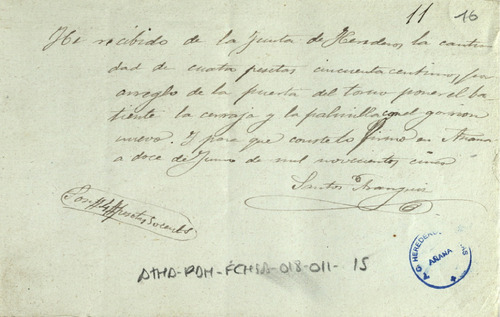 11 16
He recibido de la Junta de Herederos la canti
dad de cuatro pesetas cincuenta centimos, por
arreglo de la puerta del torno poner el ba
tiente la cerraja y la palmilla con el gorron
nuevo. Y para que conste lo firmo en Arana
a doce de Junio de mil novecientos cinco
Santos Aranguiz
Son 4 pesetas 50 cents
ATHA-DAH-FCHSA-018-011- 15
HEREDEROS
ARANA